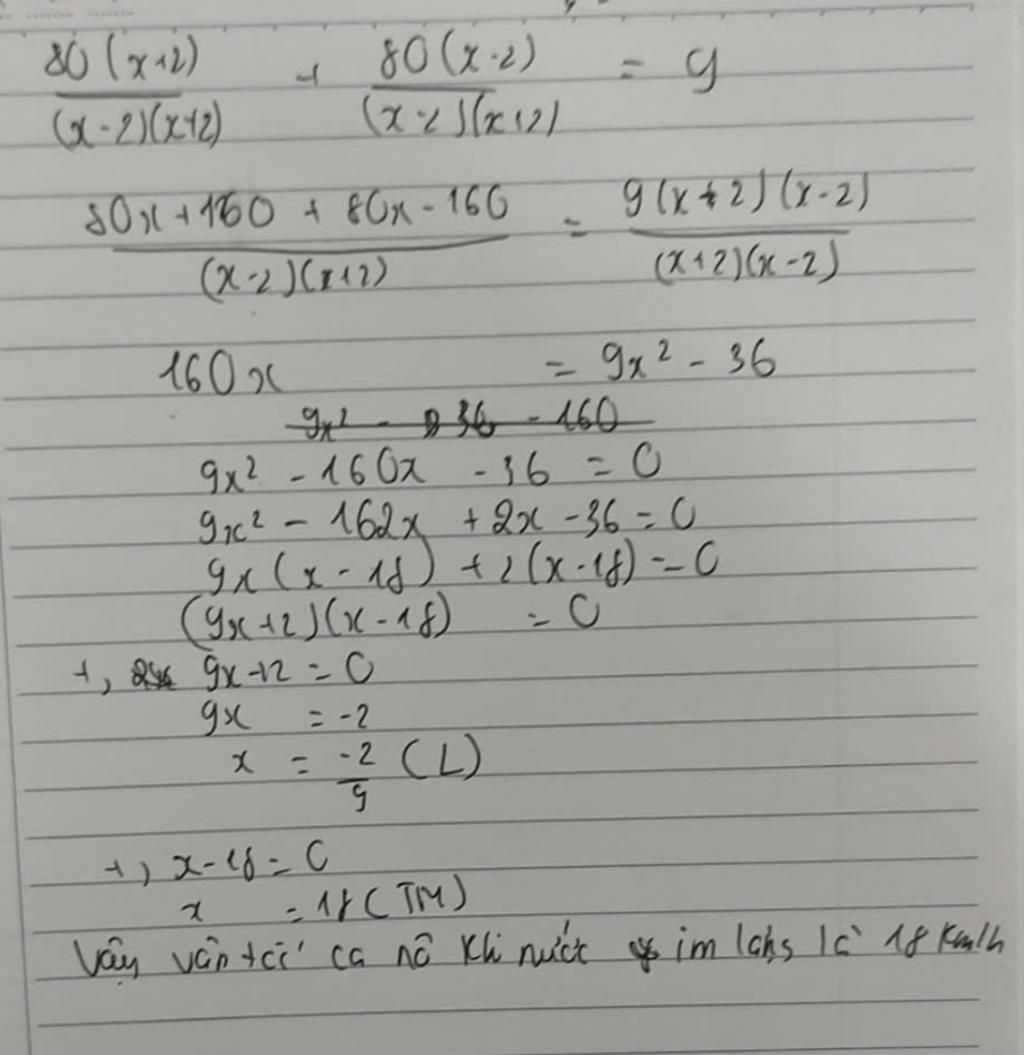 80(x+2)/(x-2)(x+2) + 80(x-2)/(x-2)(x+2) = 9
80x+160 + 80x-160/(x-2)(x+2) = 9(x+2)(x-2)/(x+2)(x-2)
160x = 9x² - 36
9x² - 36 - 160
9x² - 160x - 36 = 0
9x² - 162x + 2x - 36 = 0
9x(x-18) + 2(x-18) = 0
(9x+2)(x-18) = 0
+, 9x+2 = 0
9x = -2
x = -2/9 (L)
+, x-18 = 0
x = 18 (TM)
Vậy vân tốc ca nô khi nước im là 18 km/h